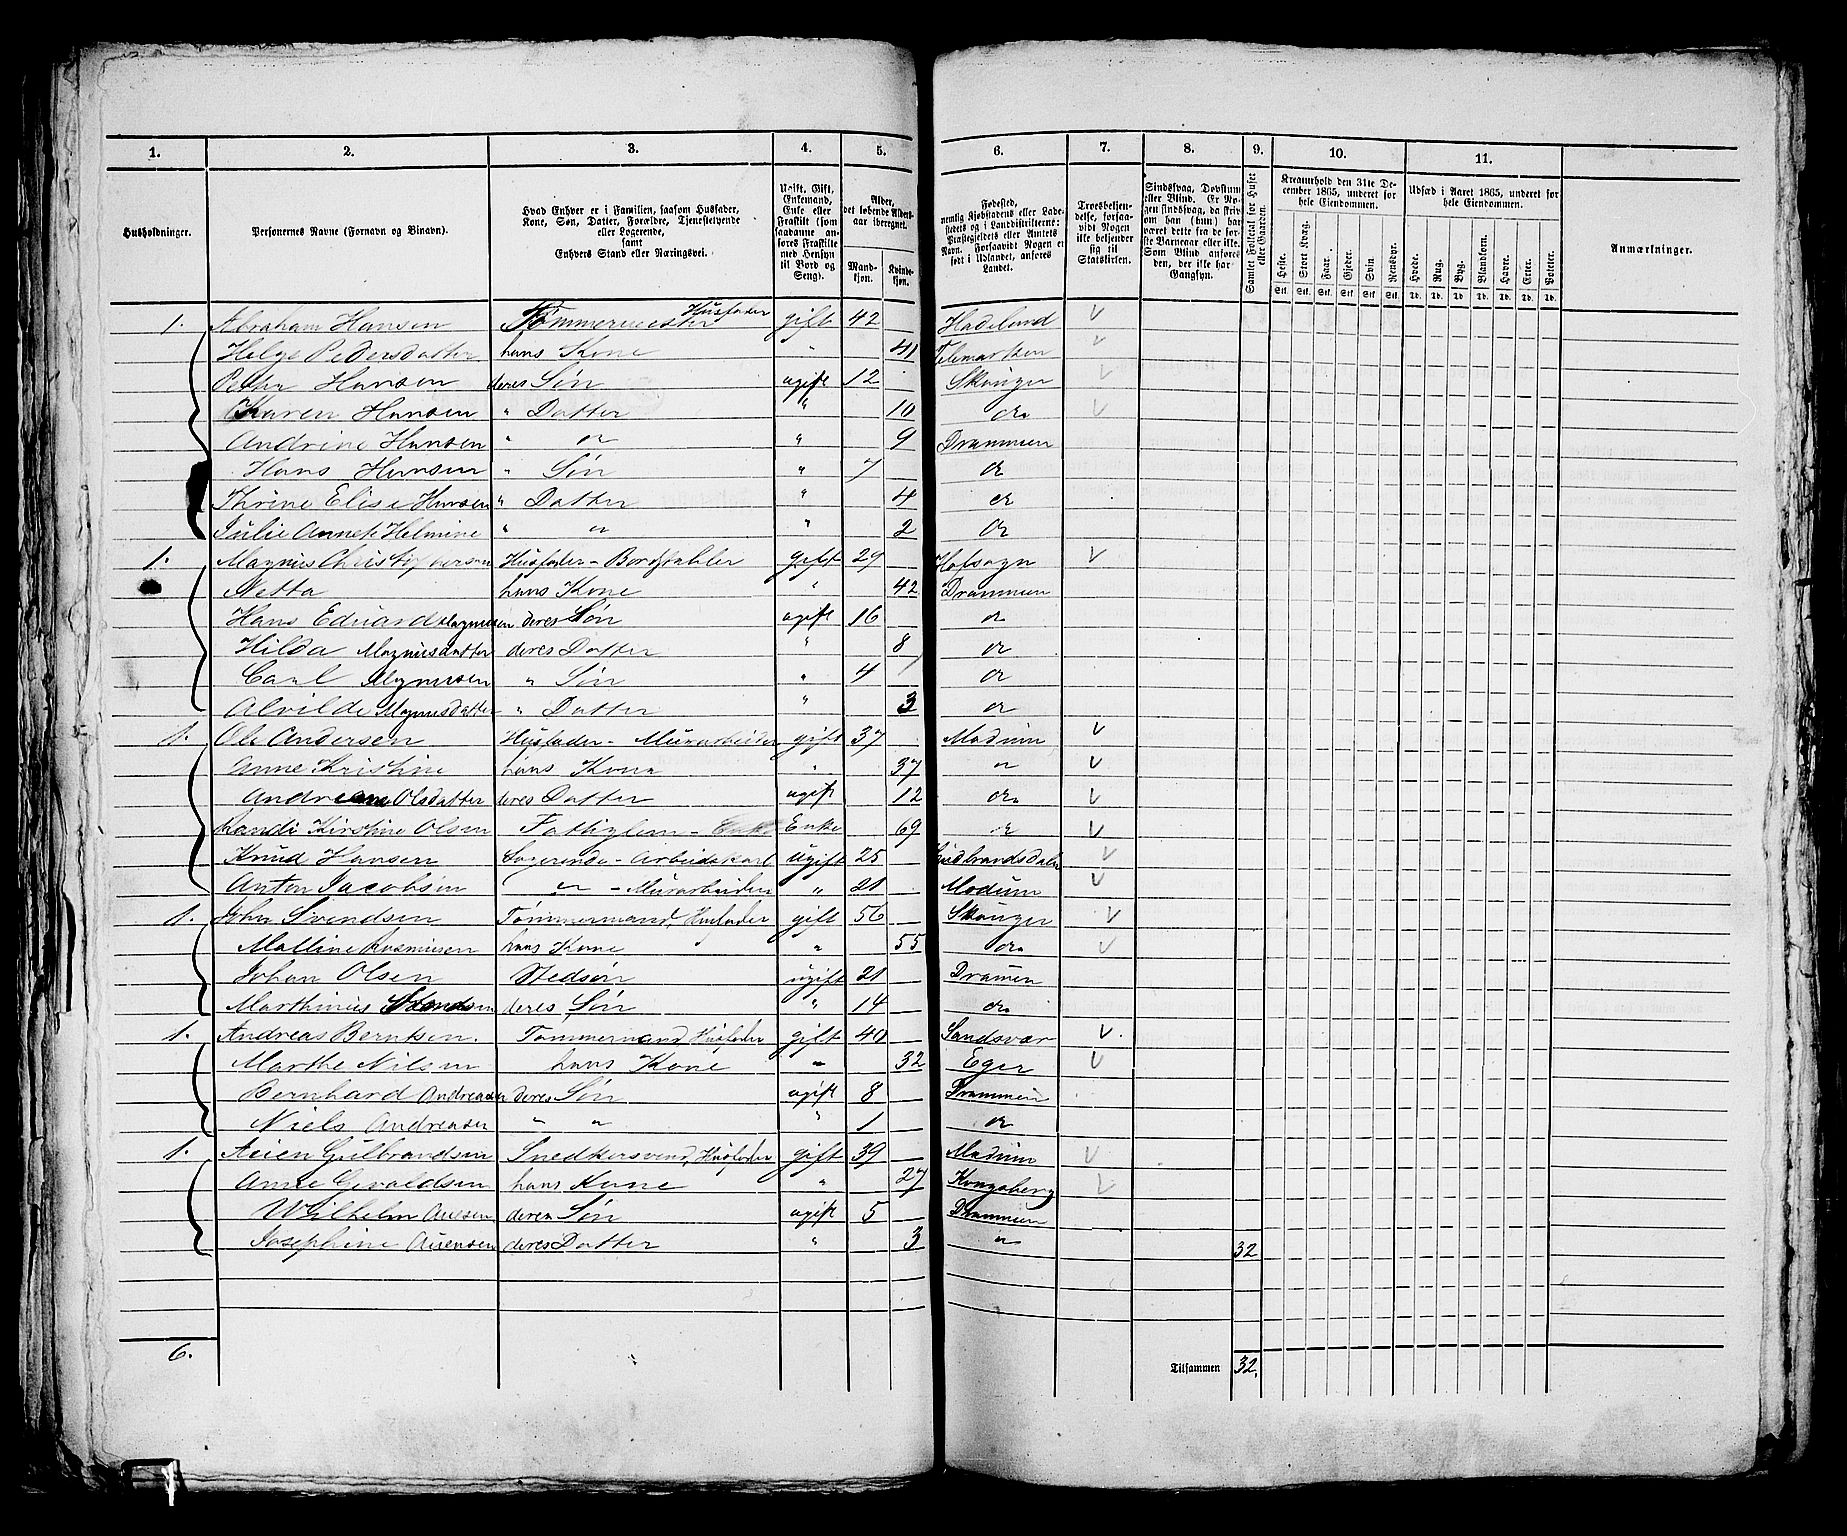 1. 2. 3. 4. 5. 6. 7. 8. 9. 10. 11.
Husholdninger.
Personernes Navne (Fornavn og Binavn).
Hvad Enhver er i Familien, saasom Husfader,
Kone, Søn, Datter, Forældre, Tjenestetyende
eller Logerende,
samt
Enhvers Stand eller Næringsvei.
Ugift, Gift,
Enkemand,
Enke eller
Fraskilt (som
saadanne an-
føres Fraskilte
med Hensyn
til Bord og
Seng).
Alder,
det løbende Alders-
aar iberegnet.
Mand-
kjøn.
Kvinde-
kjøn.
Fødested,
nemlig Kjøbstadens eller Lade-
stedets og i Landdistrikterne:
Præstegjeldets eller Amtets
Navn. Forsaavidt Nogen er
født i Udlandet, anføres
Landet.
Troesbekjen-
delse, forsaa-
vidt Nogen
ikke bekjender
sig til
Statskirken.
Sindssvag, Døvstum
eller Blind. Er No-
gen sindssvag, da skrives om
han (hun) har
været dette fra de før-
ste Barneaar eller ikke.
Som Blind anføres
den, der ikke har
Gangsyn.
Samlet Folketal for Huset
eller Gaarden.
Kreaturhold den 31te De-
cember 1865, underet for
hele Eiendommen.
Heste. Stort Kvæg. Faar. Gjeder. Svin Rensdyr.
Stk. Stk. Stk. Stk. Stk. Stk.
Udsæd i Aaret 1865, underet for
hele Eiendommen.
Hvede. Rug. Byg. Blandkorn. Havre. Erter. Poteter.
Td. Td. Td. Td. Td. Td. Td.
Anmærkninger.
1. Abraham Hansen Tømmermester Husfader gift 42 Hadeland
Helge Pedersdatter hans Kone " 41 Telemarken
Peder Hansen deres Søn ugift 12 Skouger
Karen Hansen " Datter " 10 do
Andrine Hansen " do " 9 Drammen
Hans Hansen " Søn " 7 do
Thrine Elise Hansen " Datter " 4 do
Julie Annete Helmine " " " 2 do
1. Magnus Christophersen Husfader - Bordstabler gift 29 Hofsogn
Netta hans Kone " 42 Drammen
Hans Eduard Magnusen deres Søn ugift 16 do
Hilda Magnusdatter deres Datter " 8 do
Carl Magnusen " Søn " 4 do
Alvilde Magnusdatter " Datter " 3 do
1. Ole Andersen Husfader - Murarbeider gift 37 Modum
Anne Kristine hans Kone " 37 do
Andreane Olsdatter deres Datter ugift 12 do
Randi Kirstine Olsen Fattiglem - Enke Enke 69 do
Knud Hansen Logerende - Arbeidskarl Ugift 25 Gudbrandsdalen
Anton Jacobsen do - Murarbeider " 21 Modum
1. John Svendsen Tømmermand, Husfader gift 56 Skouger
Malline Rasmusen hans Kone " 55 do
Johan Olsen Stedsøn ugift 21 Dramen
Marthinius Svendsen deres Søn " 14 do
1. Andreas Berntsen. Tømmermand Husfader gift 40 Sandsvær
Marthe Nilsen hans Kone " 32 Eger
Bernhard Andreasen deres Søn ugift 8 Drammen
Niels Andreasen " " " 1 do
1. Auen Gulbrandsen Snedkersvend, Husfader gift 39 Modum
Anne Gevaldsen hans Kone " 27 Kongsberg
Wilhelm Auensen deres Søn ugift 5 Drammen
Josephine Auensen deres Datter " 3 do 32
6. Tilsammen 32.